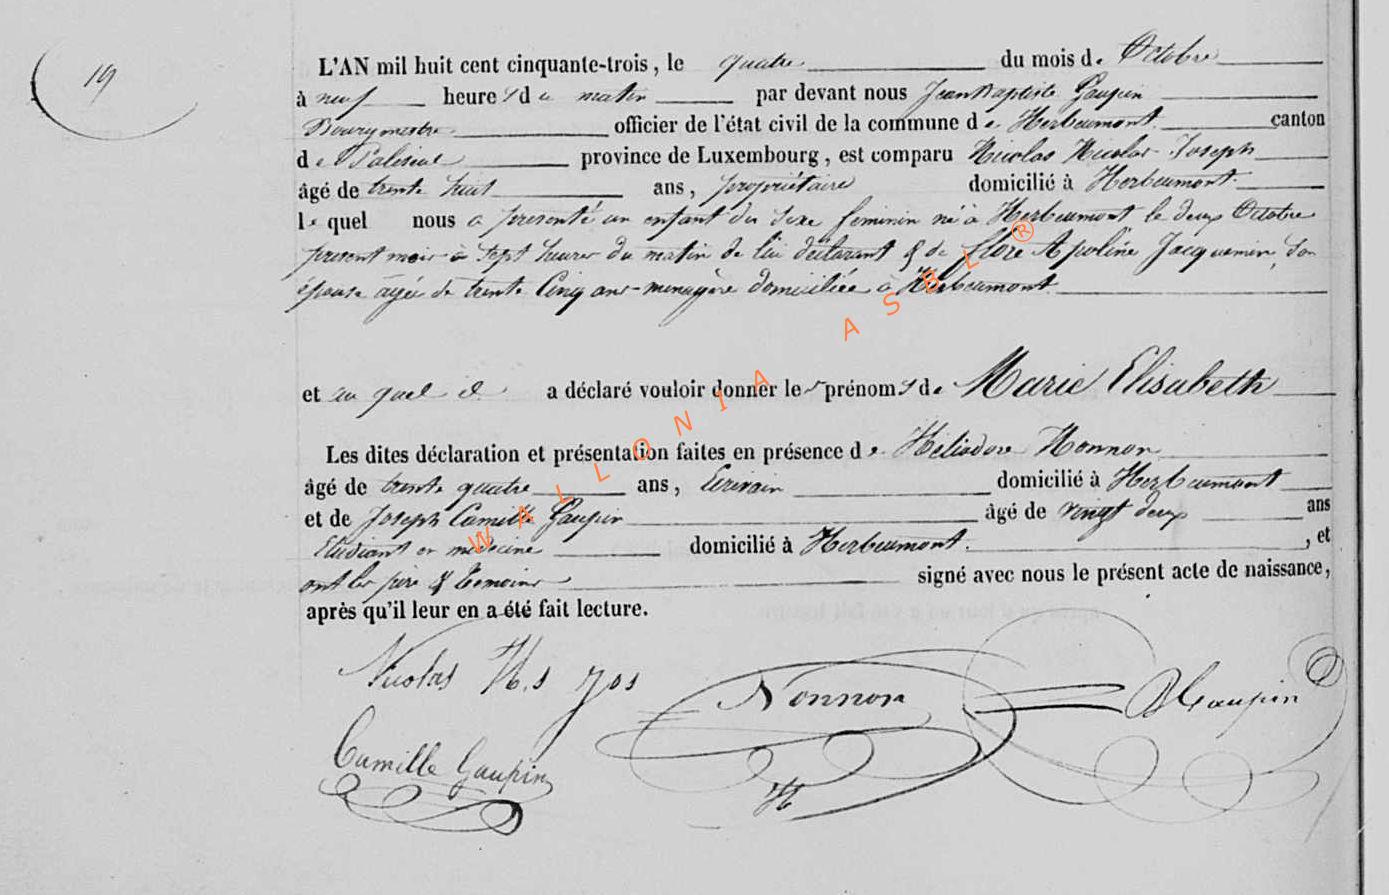 19
L'AN mil huit cent cinquante-trois, le quatre du mois de Octobre
à neuf heures du matin par devant nous Jean Baptiste Gaupin
Bourgmestre officier de l'état civil de la commune de Herbeumont canton
de Paliseul province de Luxembourg, est comparu Nicolas Nicolas Joseph
âgé de trente huit ans, propriétaire domicilié à Herbeumont
lequel nous a présenté un enfant du sexe féminin né à Herbeumont le deux Octobre
présent mois à sept heures du matin de lui déclarant & de flore Apoline Jacquemin, son
épouse âgée de trente Cinq ans ménagère domiciliée à Herbeumont
et au quel il a déclaré vouloir donner les prénoms de Marie Elisabeth
Les dites déclaration et présentation faites en présence de Héliodore Nonnon
âgé de trente quatre ans, Ecrivain domicilié à Herbeumont
et de Joseph Camille Gaupin âgé de vingt deux ans
Etudiant en médecine domicilié à Herbeumont, et
ont les père & témoins signé avec nous le présent acte de naissance,
après qu'il leur en a été fait lecture.
Nicolas Jos
Nonnon
Gaupin
Camille Gaupin
H
WALLONIA ASBL ®